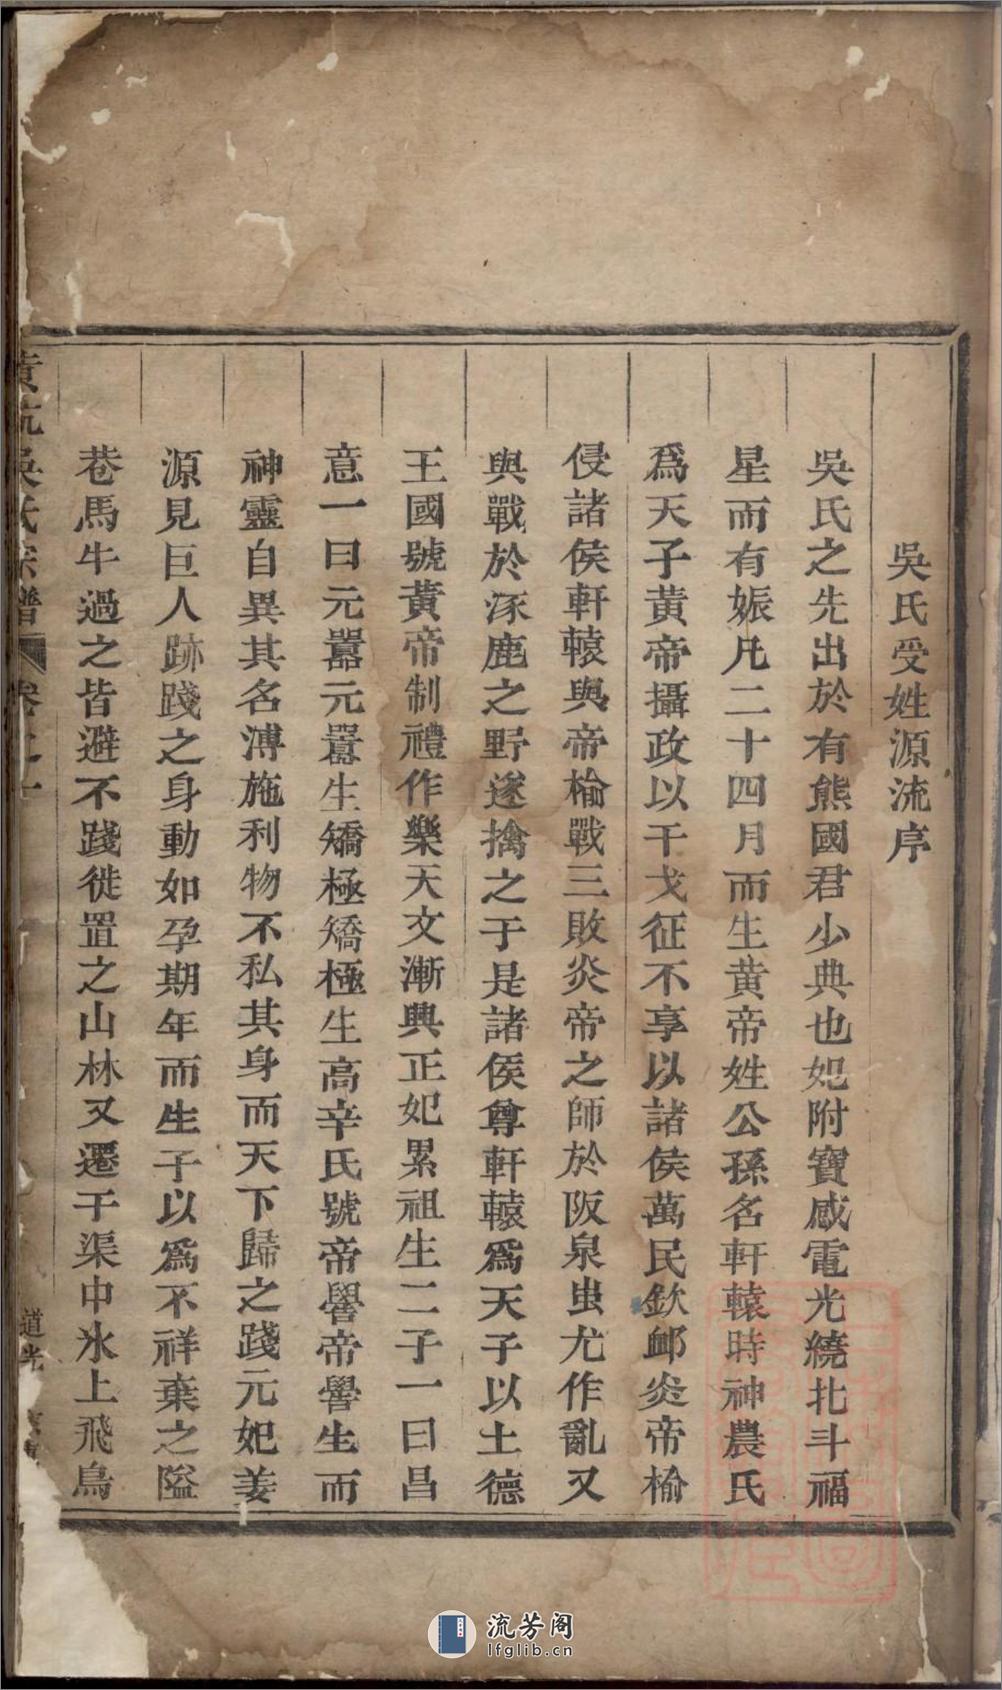 吳氏受姓源流序
吳氏之先出於有熊國君少典也妃附寶感電光繞北斗福
星而有娠凡二十四月而生黄帝姓公孫名軒轅時神農氏
爲天子黄帝攝政以干戈征不享以諸侯萬民欽邺炎帝榆
侵諸侯軒轅與帝榆戰三敗炎帝之師於阪泉虫尤作亂又
與戰於涿鹿之野遂擒之于是諸侯尊軒轅爲天子以土德
王國號黄帝制禮作樂天文漸興正妃累祖生二子一曰昌
意一曰元囂元囂生矯極矯極生高辛氏號帝嚳帝嚳生而
神靈自異其名溥施利物不私其身而天下歸之踐元妃姜
源見巨人跡踐之身動如孕期年而生子以爲不祥棄之隘
巷馬牛過之皆避不踐徙置之山林又遷于渠中氷上飛鳥
吳氏宗譜
道光
流芳阁
lfglib.cn